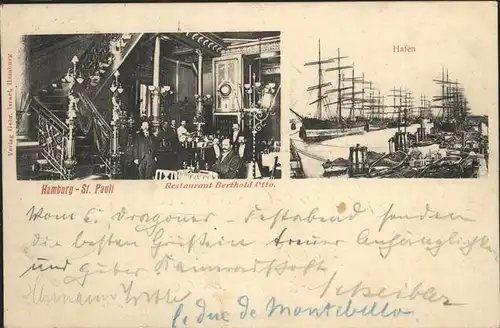 Verlag Gebr. Israel, Hamburg
Hafen
Hamburg - St. Pauli
Restaurant Berthold Otto.
Vom 5. Dragoner - Festabend senden
die besten Grüße in treuer Anhänglichkeit
und guter Kameradschaft
Schreiber
Hermann
le duc de Montebello.